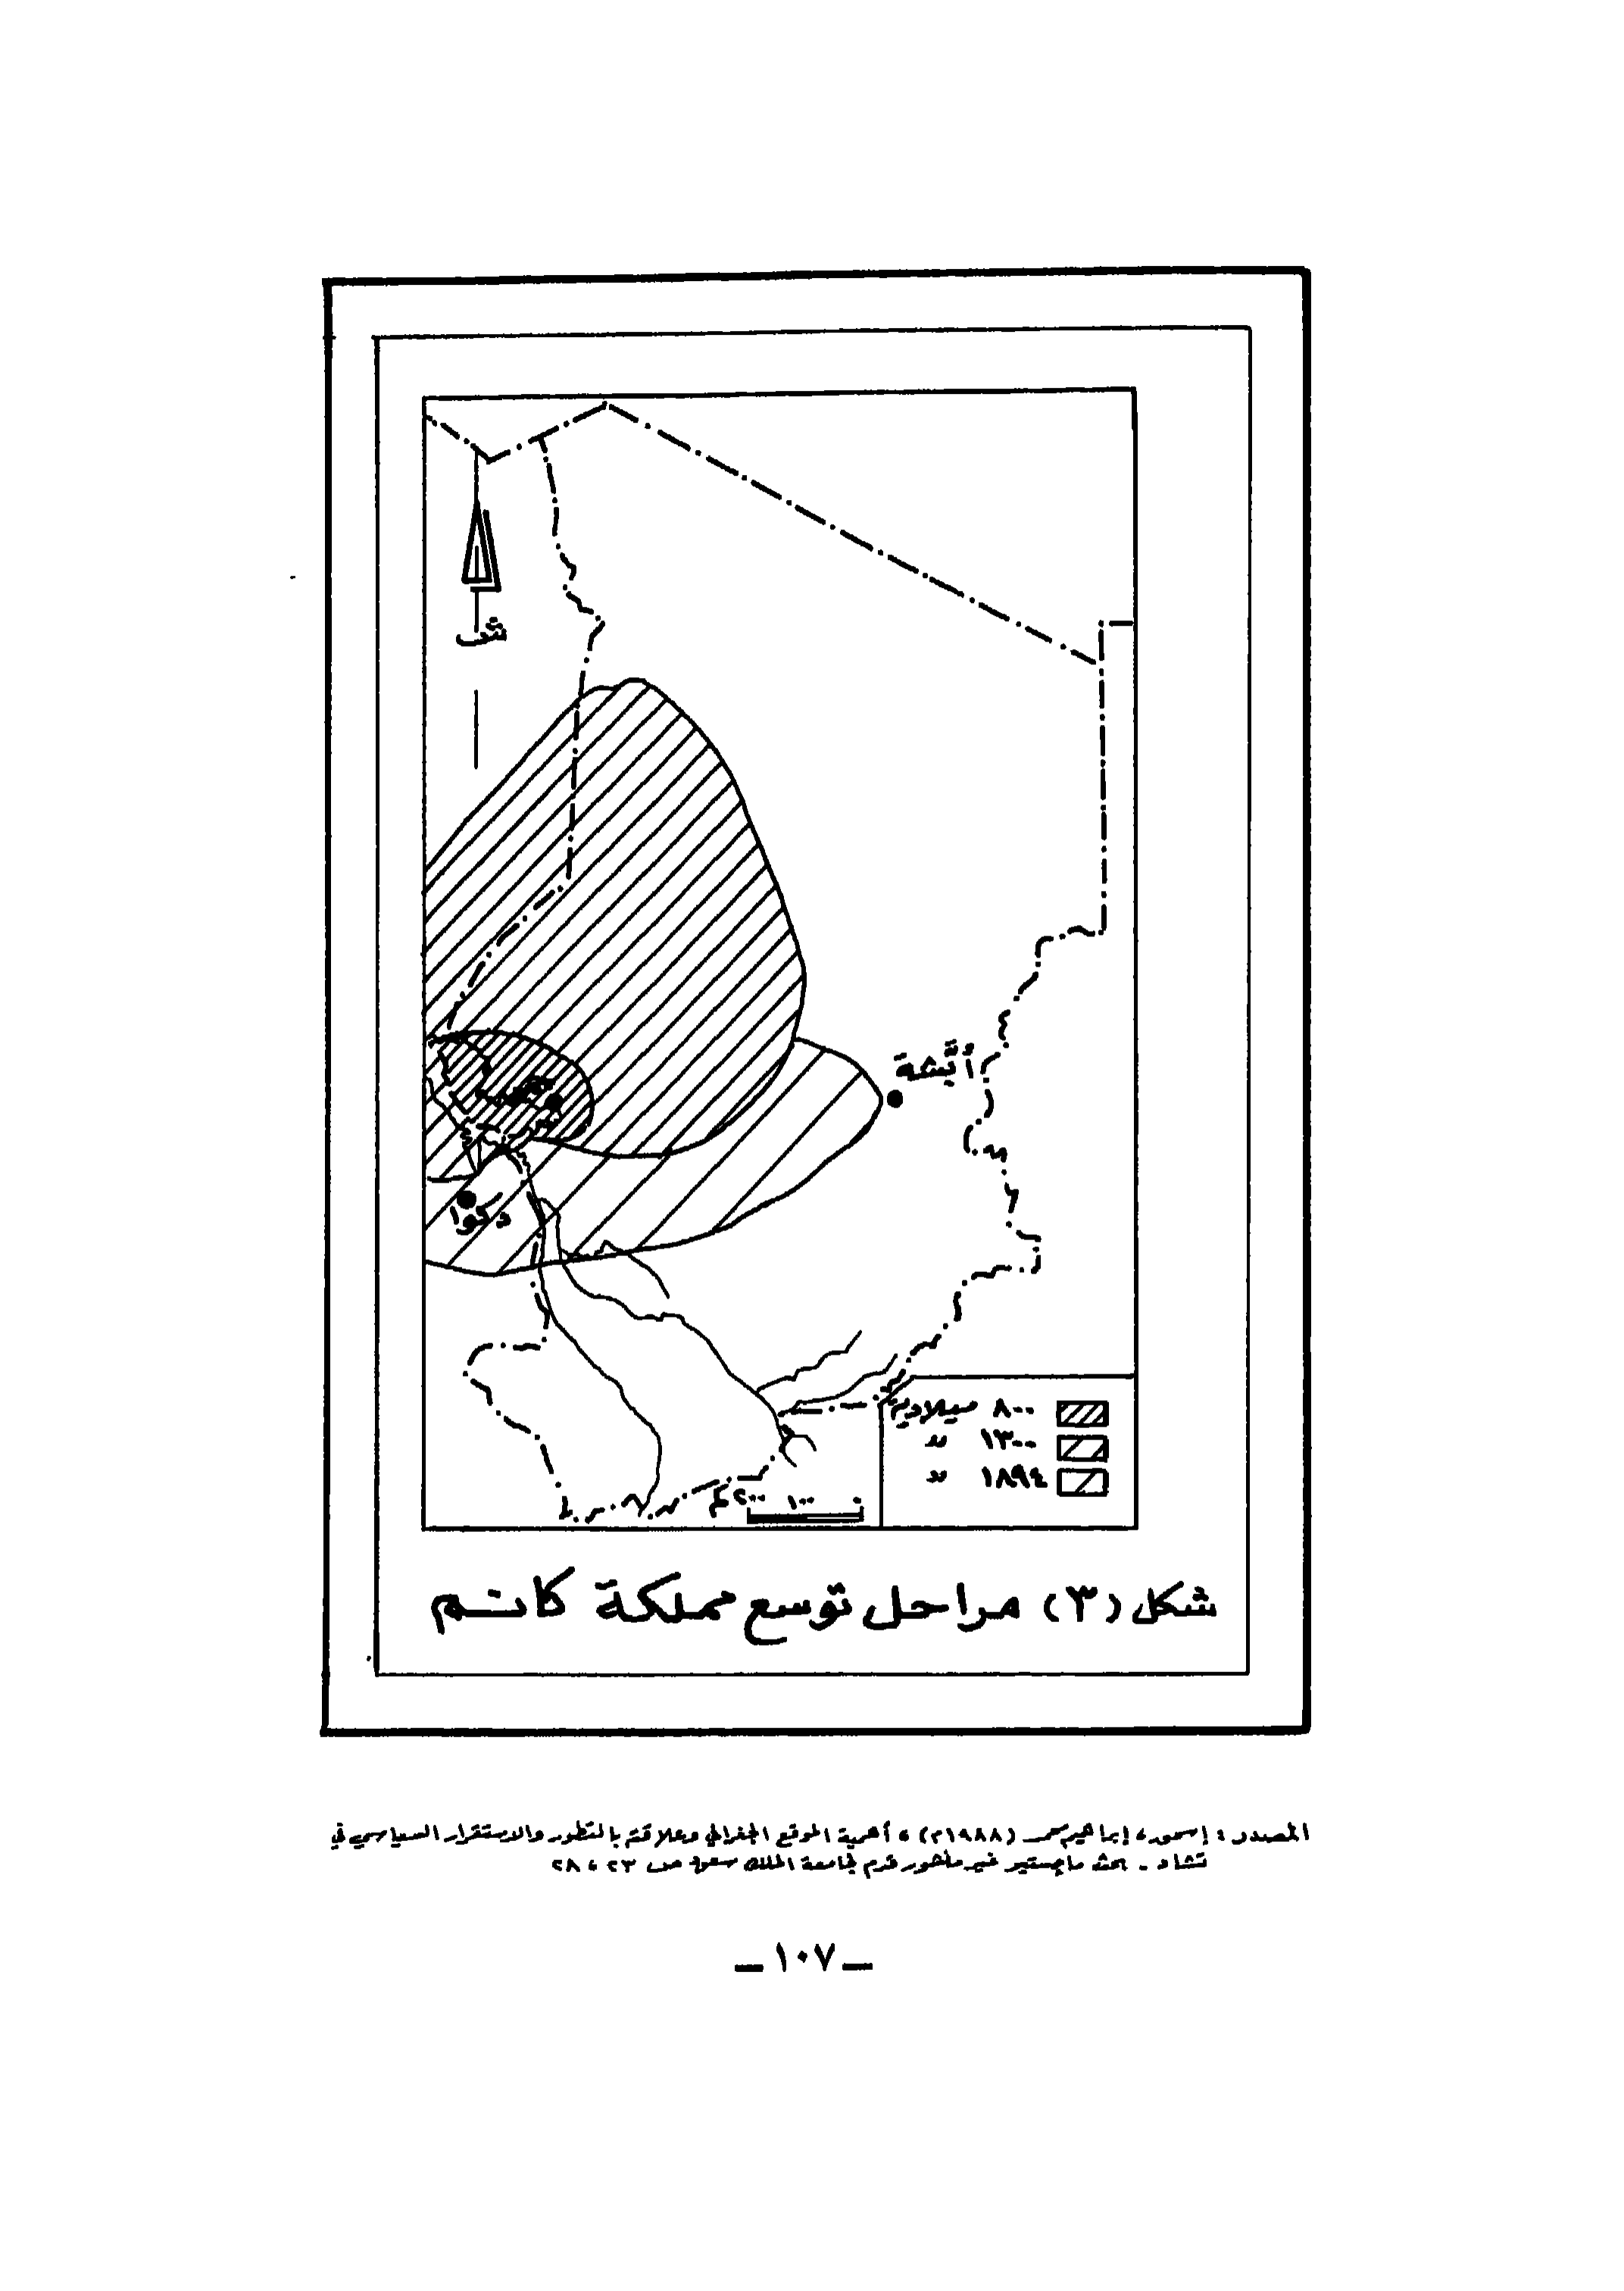 ش
أبشة
دكوا
٨٠٠ ميلادية
١٣٠٠ "
١٨٩٤ "
٠ ١٠٠ ٢٠٠ كم
شكل (٣) مراحل توسع مملكة كانم
المصدر : إسحق، إبراهيم محمد (١٩٨٨م) ، أهمية الموقع الجغرافي وعلاقته بالتطور والاستقرار السياسي في
تشاد - بحث ماجستير غير منشور قدم لجامعة الملك سعود ص ٢٣ ، ٢٨
— ١٠٧ —